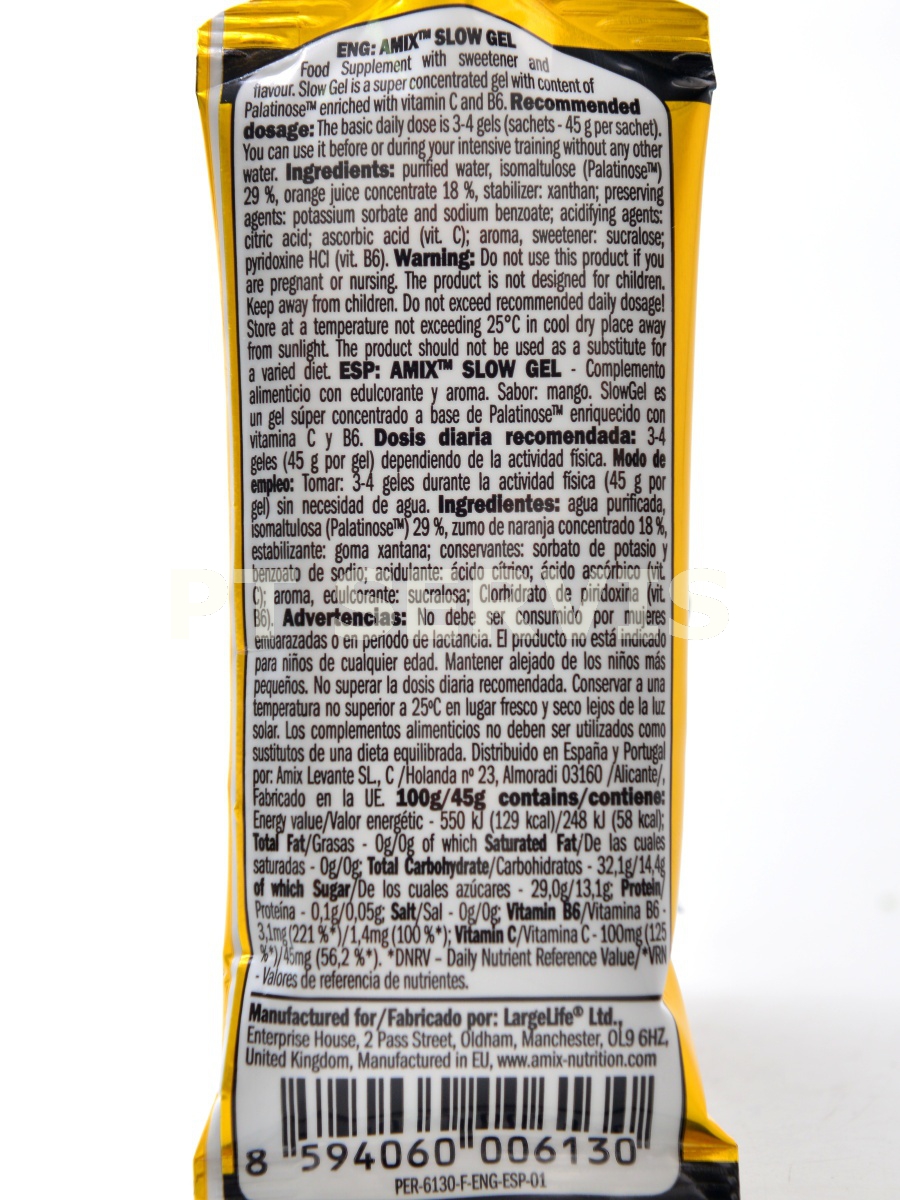 ENG: AMIX™ SLOW GEL
Food Supplement with sweetener and
flavour. Slow Gel is a super concentrated gel with content of
Palatinose™ enriched with vitamin C and B6. Recommended
dosage: The basic daily dose is 3-4 gels (sachets - 45 g per sachet).
You can use it before or during your intensive training without any other
water. Ingredients: purified water, isomaltulose (Palatinose™)
29 %, orange juice concentrate 18 %, stabilizer: xanthan; preserving
agents: potassium sorbate and sodium benzoate; acidifying agents:
citric acid; ascorbic acid (vit. C); aroma, sweetener: sucralose;
pyridoxine HCl (vit. B6). Warning: Do not use this product if you
are pregnant or nursing. The product is not designed for children.
Keep away from children. Do not exceed recommended daily dosage!
Store at a temperature not exceeding 25°C in cool dry place away
from sunlight. The product should not be used as a substitute for
a varied diet. ESP: AMIX™ SLOW GEL - Complemento
alimenticio con edulcorante y aroma. Sabor: mango. SlowGel es
un gel súper concentrado a base de Palatinose™ enriquecido con
vitamina C y B6. Dosis diaria recomendada: 3-4
geles (45 g por gel) dependiendo de la actividad física. Modo de
empleo: Tomar: 3-4 geles durante la actividad física (45 g por
gel) sin necesidad de agua. Ingredientes: agua purificada,
isomaltulosa (Palatinose™) 29 %, zumo de naranja concentrado 18 %,
estabilizante: goma xantana; conservantes: sorbato de potasio y
benzoato de sodio; acidulante: ácido cítrico; ácido ascórbico (vit.
C); aroma, edulcorante: sucralosa; Clorhidrato de piridoxina (vit.
B6). Advertencias: No debe ser consumido por mujeres
embarazadas o en periodo de lactancia. El producto no está indicado
para niños de cualquier edad. Mantener alejado de los niños más
pequeños. No superar la dosis diaria recomendada. Conservar a una
temperatura no superior a 25ºC en lugar fresco y seco lejos de la luz
solar. Los complementos alimenticios no deben ser utilizados como
sustitutos de una dieta equilibrada. Distribuido en España y Portugal
por: Amix Levante SL., C /Holanda nº 23, Almoradi 03160 /Alicante/,
Fabricado en la UE. 100g/45g contains/contiene:
Energy value/Valor energétic - 550 kJ (129 kcal)/248 kJ (58 kcal);
Total Fat/Grasas - 0g/0g of which Saturated Fat/De las cuales
saturadas - 0g/0g; Total Carbohydrate/Carbohidratos - 32,1g/14,4g
of which Sugar/De los cuales azúcares - 29,0g/13,1g; Protein/
Proteína - 0,1g/0,05g; Salt/Sal - 0g/0g; Vitamin B6/Vitamina B6 -
3,1mg (221 %*)/1,4mg (100 %*); Vitamin C/Vitamina C - 100mg (125
%*)/45mg (56,2 %*). *DNRV – Daily Nutrient Reference Value/*VRN
- Valores de referencia de nutrientes.
Manufactured for/Fabricado por: LargeLife® Ltd.,
Enterprise House, 2 Pass Street, Oldham, Manchester, OL9 6HZ,
United Kingdom, Manufactured in EU, www.amix-nutrition.com
8 594060 006130
PER-6130-F-ENG-ESP-01
PT SERVIS